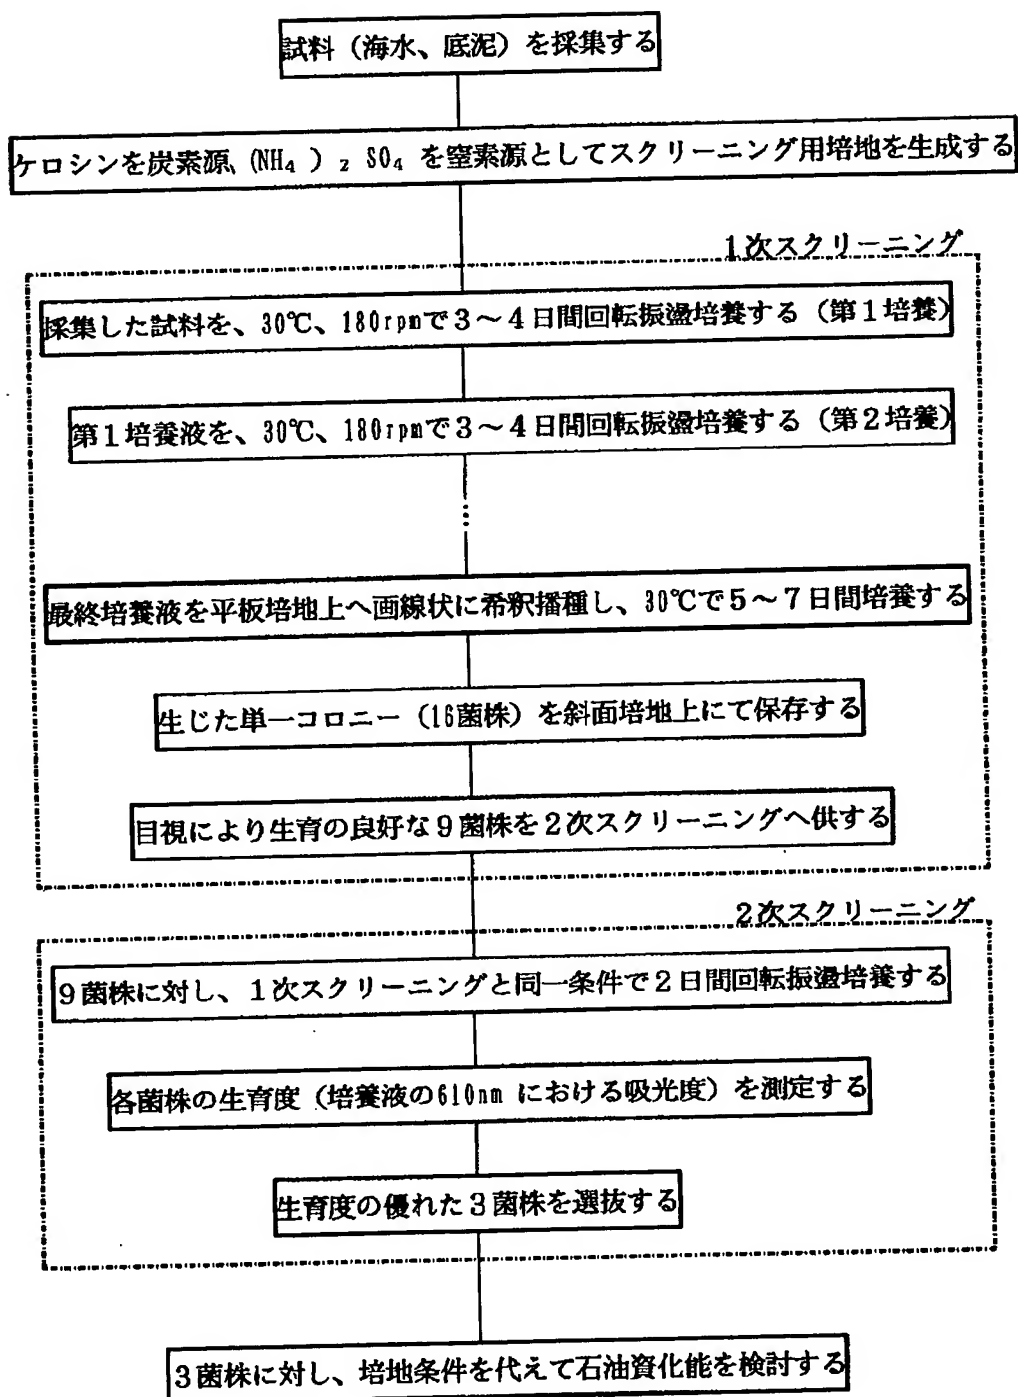 試料(海水、底泥)を採集する
ケロシンを炭素源、(NH₄)₂ SO₄ を窒素源としてスクリーニング用培地を生成する
1次スクリーニング
採集した試料を、30℃、180rpmで3〜4日間回転振盪培養する(第1培養)
第1培養液を、30℃、180rpmで3〜4日間回転振盪培養する(第2培養)
最終培養液を平板培地上へ画線状に希釈播種し、30℃で5〜7日間培養する
生じた単一コロニー(16菌株)を斜面培地上にて保存する
目視により生育の良好な9菌株を2次スクリーニングへ供する
2次スクリーニング
9菌株に対し、1次スクリーニングと同一条件で2日間回転振盪培養する
各菌株の生育度(培養液の610nm における吸光度)を測定する
生育度の優れた3菌株を選抜する
3菌株に対し、培地条件を代えて石油資化能を検討する